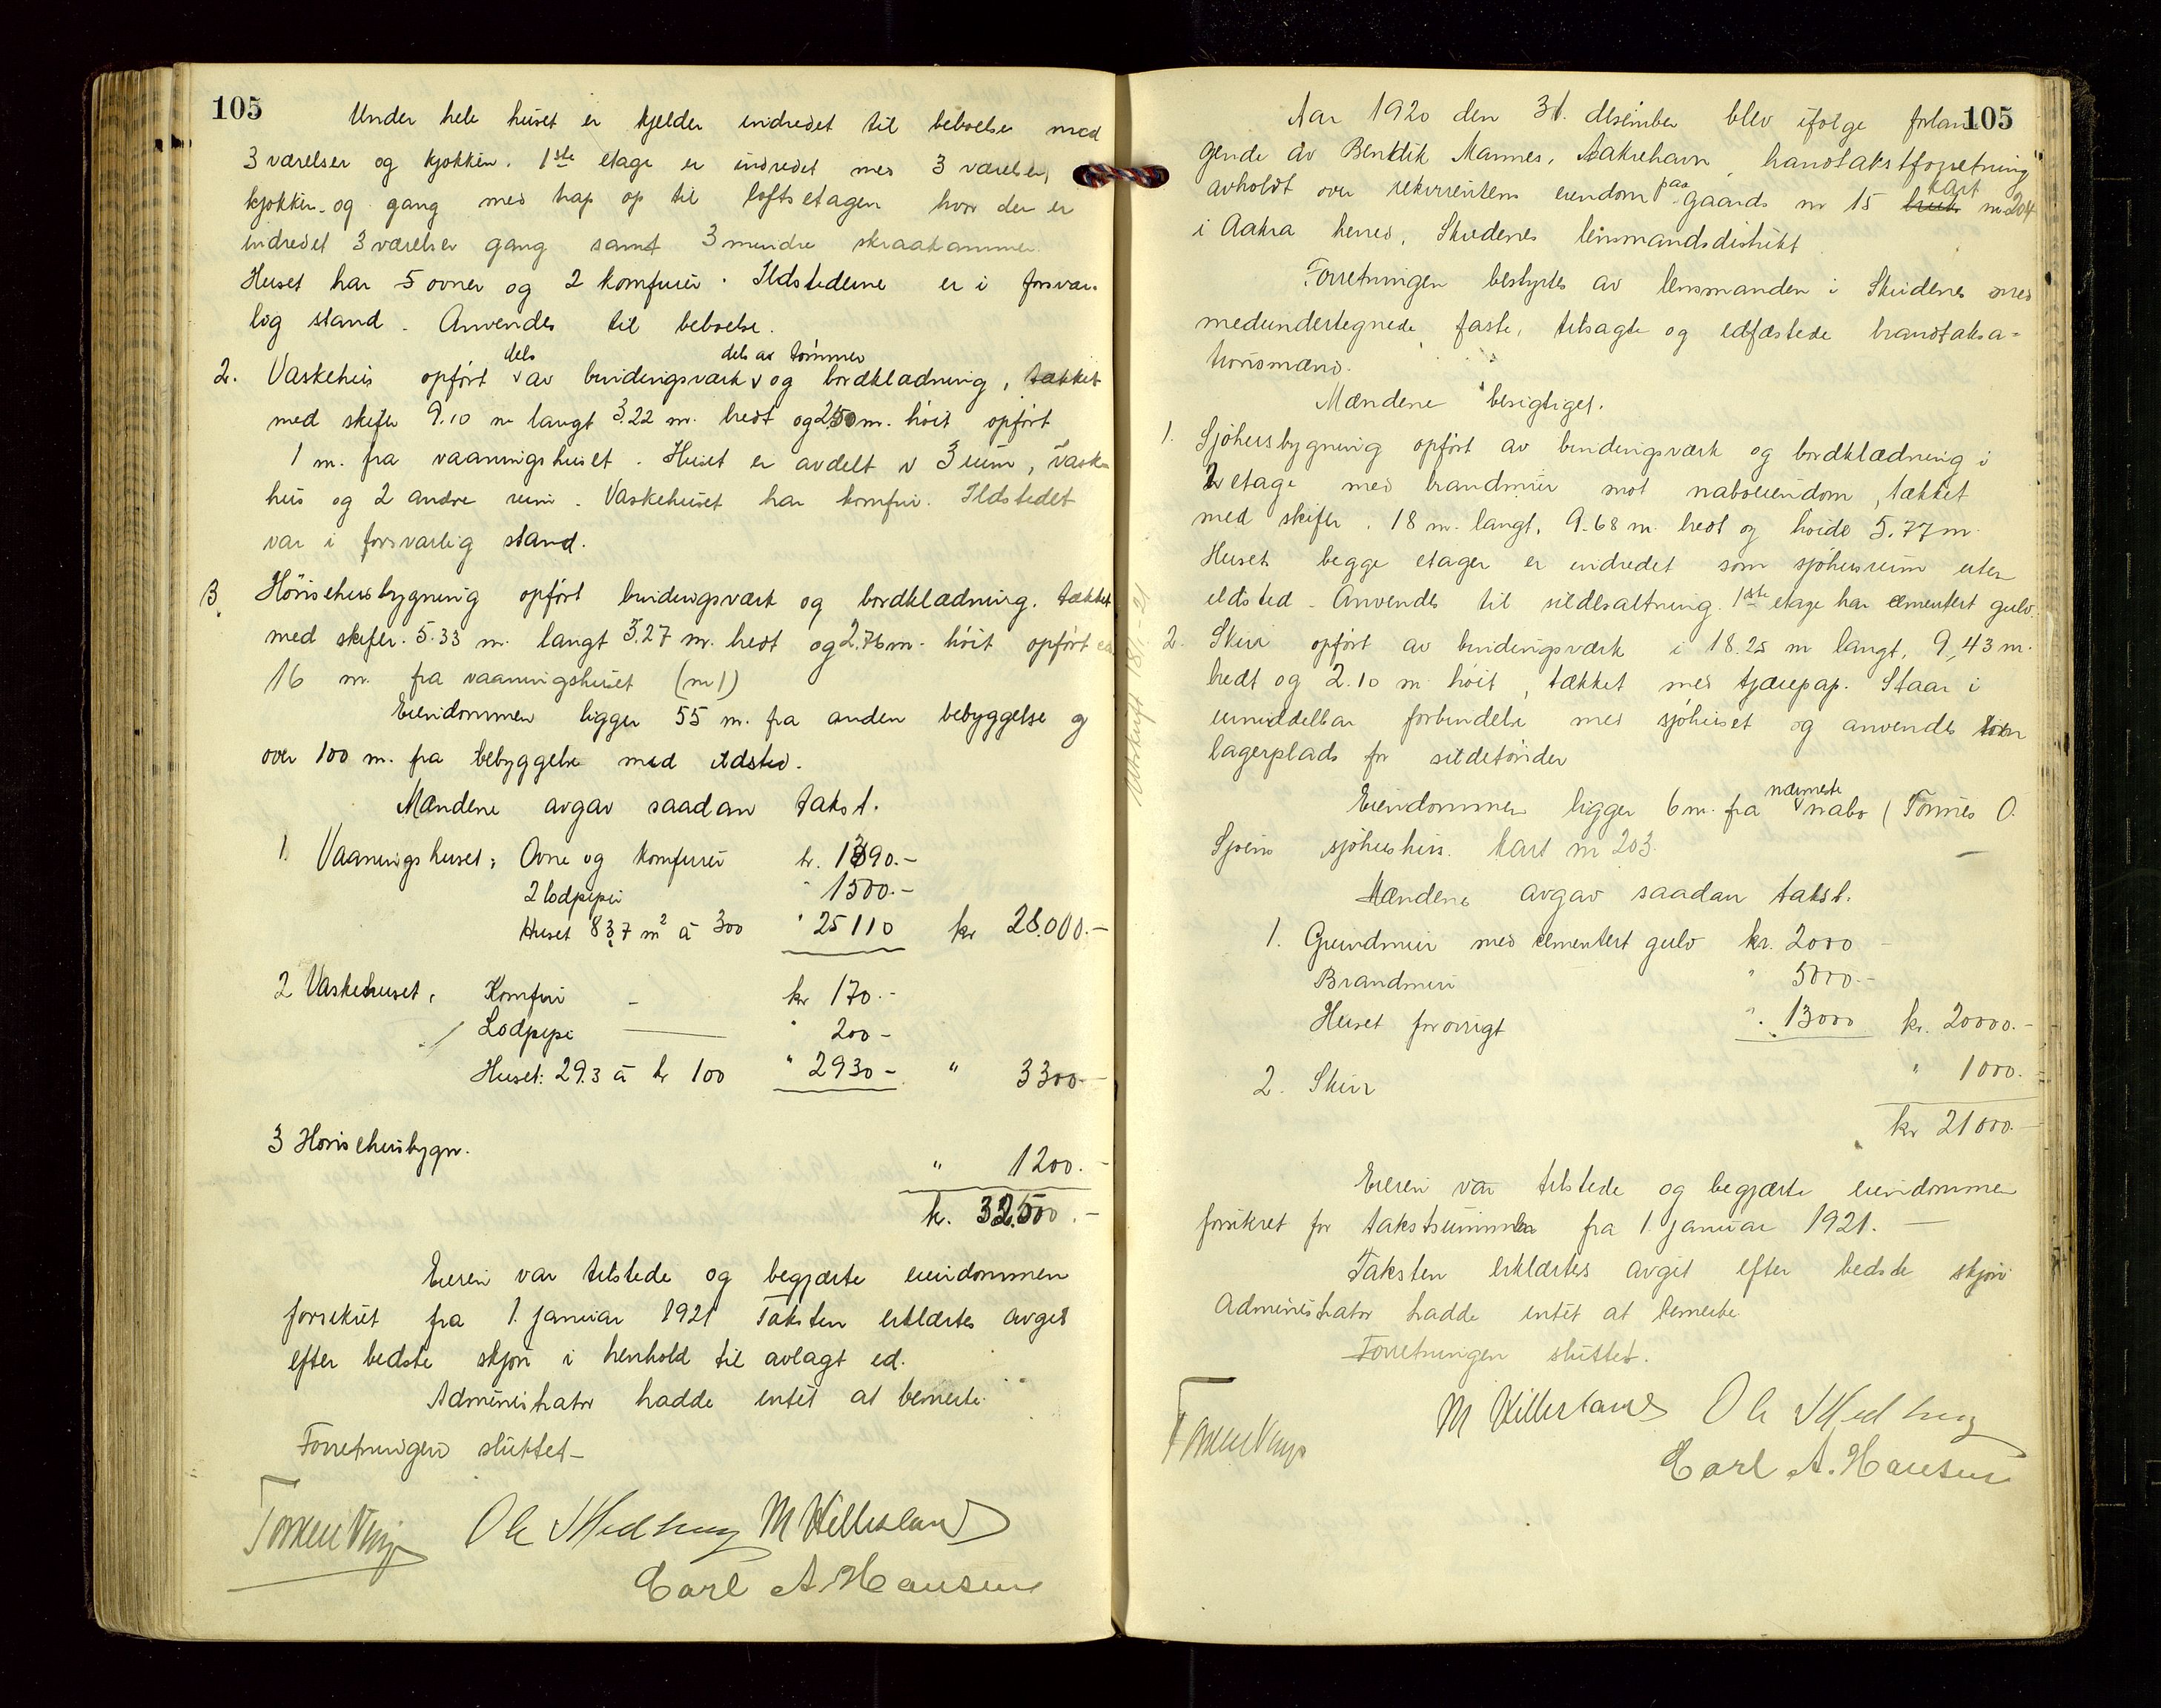 105
Under hele huset er kjelder indredet til beboelse med
3 værelser og kjøkken. 1ste etage er indredet med 3 værelser,
kjøkken og gang med trap op til loftsetagen hvor der er
indredet 3 værelser gang samt 3 mindre skraakammer.
Huset har 5 ovner og 2 komfurer. Ildstederne er i forsvar-
lig stand. Anvendes til beboelse.
dels dels av tømmer
2. Vaskehus opført av bindingsværk og bordklædning, tækket
med skifer 9.10 m langt 3.22 m. bredt og 2.50 m. høit opført
1 m. fra vaaningshuset. Huset er avdelt i 3 rum, vaske-
hus og 2 andre rum. Vaskehuset har komfur. Ildstedet
var i forsvarlig stand.
3. Hønsehusbygning opført bindingsværk og bordklædning, tækket
med skifer. 5.33 m. langt 3.27 m. bredt og 2.76 m. høit opført ca.
16 m. fra vaaningshuset (nr 1)
Eiendommen ligger 55 m. fra anden bebyggelse og
over 100 m. fra bebyggelse med ildsted.
Mændene avgav saadan takst.
1. Vaaningshuset: Ovne og komfurer kr. 1390.-
2 lodpiper " 1500.-
Huset 83,7 m² à 300 " 25110 kr 28.000.-
2 Vaskehuset, Komfur - kr 170.-
Lodpipe " 200-
Huset: 29.3 à kr 100 " 2930- " 3300.-
3 Hønsehusbygn.
" 1200.-
kr. 32.500.-
Eieren var tilstede og begjærte eiendommen
forsikret fra 1. januar 1921 Taksten erklærtes avgit
efter bedste skjøn i henhold til avlagt ed.
Administrator hadde intet at bemerke.
Forretningen sluttet-
Ole Medhaug M Hillesland
Carl A. Hansen
Utskrift 18/1-21
105
Aar 1920 den 31. desember blev ifølge forlan-
gende av Bendik Mannes, Aakrehavn, brandtakstforretning
avholdt over rekvirentens eiendom paa gaards nr 15 bruk kart nr 204
i Aakra herred, Skudenes lensmandsdistrikt.
Forretningen bestyrtes av lensmanden i Skudenes med
medundertegnede faste, tilsagte og edfæstede brandtaksa-
tionsmænd.
Mændene besigtiget.
1. Sjøhusbygning opført av bindingsværk og bordklædning i
2 etage med brandmur mot naboeiendom, tækket
med skifer. 18 m. langt, 9.68 m. bredt og høide 5.77 m.
Husets begge etager er indredet som sjøhusrum uten
ildsted. Anvendes til sildesaltning. 1ste etage har cementert gulv.
2. Skur opført av bindingsværk i 18.25 m langt, 9,43 m.
bredt og 2.10 m høit, tækket med tjærepap. Staar i
umiddelbar forbindelse med sjøhuset og anvendes som
lagerplads for sildetønder
Eiendommen ligger 6 m. fra nærmeste nabo (Tønnes O.
Sjøens sjøhushus. kart nr 203. -
Mændene avgav saadan takst.
1. Grundmur med cementert gulv kr. 2000 -
Brandmur " 5000.-
Huset forøvrigt " 13000 kr. 20000.-
2. Skur " 1000.-
kr 21000.-
Eieren var tilstede og begjærte eiendommen
forsikret for takstsummen fra 1. januar 1921. -
Taksten erklærtes avgit efter bedste skjøn
Administrator hadde intet at bemerke
Forretningen sluttet.
M Hillesland Ole Medhaug
Carl A. Hansen